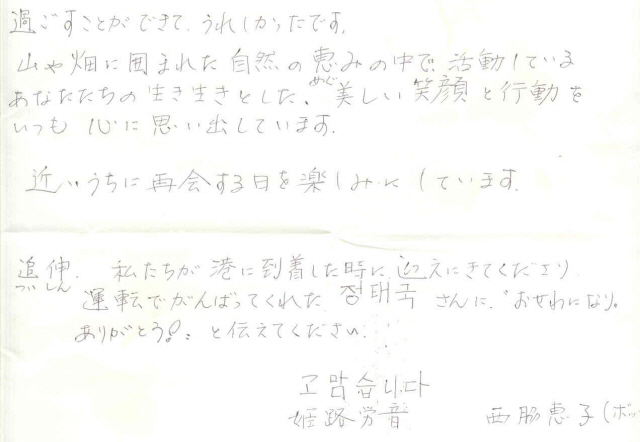 過ごすことができて、うれしかったです。
山や畑に囲まれた自然の恵みの中で活動している
めぐ
あなたたちの生き生きとした、美しい笑顔と行動を
いつも心に思い出しています。
近いうちに再会する日を楽しみにしています。
追伸. 私たちが港に到着した時に、迎えにきてくださり
ついしん
運転でがんばってくれた 정태국 さんに、"おせわになり。
ありがとう!" と伝えてください。
고맙습니다
姫路労音 西脇恵子(ボッ